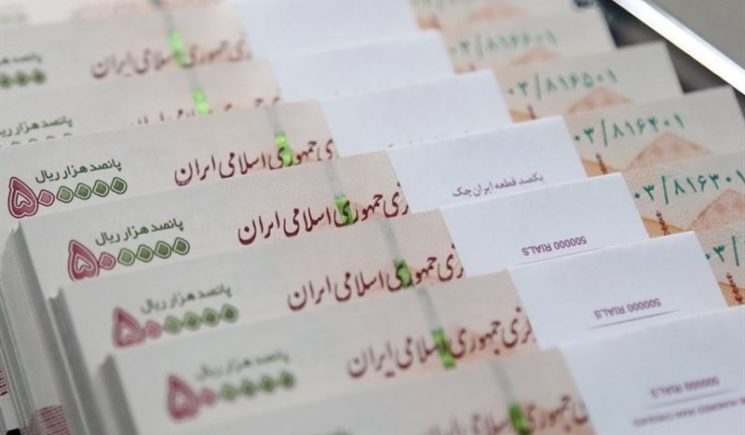 جمهوری اسلامی ایران
۰۳/۸۱۶۶۰۱
پانصد هزار ریال
جمهوری اسلامی ایران
۰۳/۸۱۶۵۰۱
پانصد هزار ریال
۵۰۰۰۰۰
جمهوری اسلامی ایران
یکصد قطعه ایران چک
۰۳/۸۱۶۴۰۱
پانصد هزار ریال
۵۰۰۰۰۰
جمهوری اسلامی ایران
500000 RIALS
۰۳/۸۱۶۳۰۱
پانصد هزار ریال
۵۰۰۰۰۰
جمهوری اسلامی ایران
500000 RIALS
پانصد هزار ریال
۵۰۰۰۰۰
جمهوری اسلامی ایران
500000 RIALS